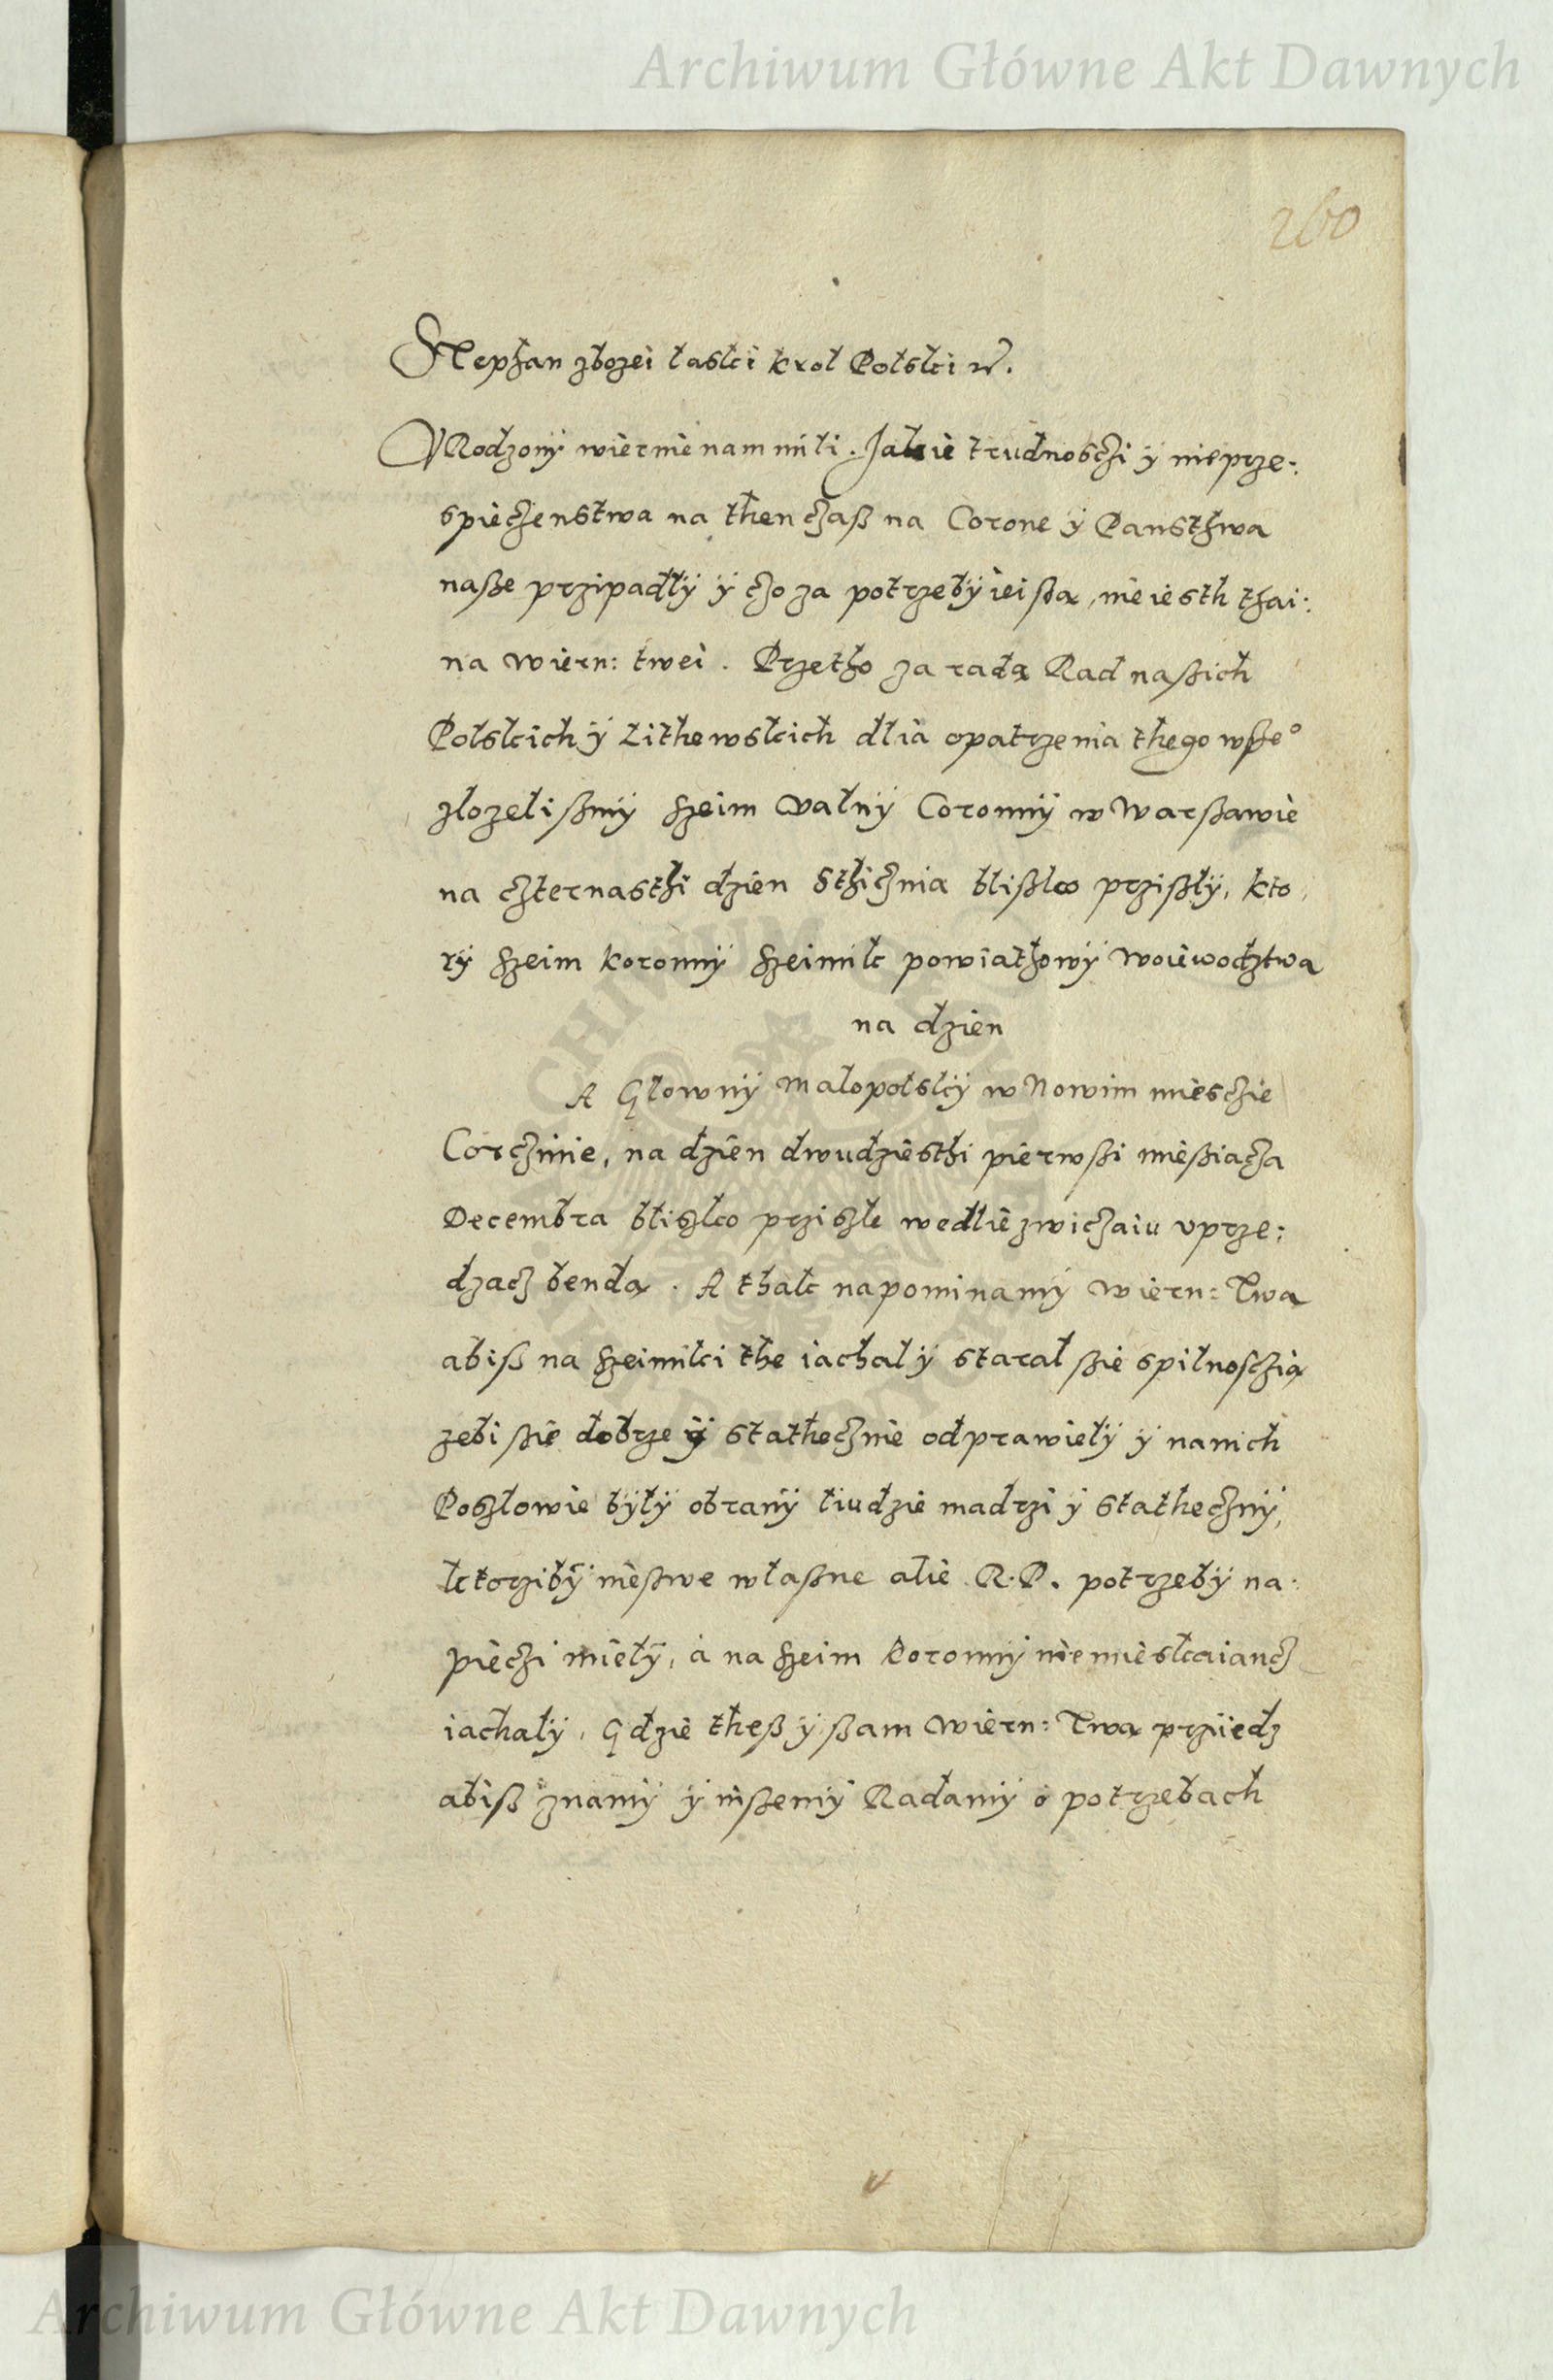 Archiwum Główne Akt Dawnych
260
Stephan zbozei łaski krol Polski
VRodzony wiernie nam mili. Jakie trudnosczi y nieprze:
spieczenstwa na then czaß na Corone y Pansthwa
naße przipadły y czo za potrzeby iei ßa, nie iesth thai:
na wiern: twei. Przetho za rada Rad naßich
Polskich y Lithewskich dlia opatrzenia thego wße°
zlozelißmy szeim valny Coronny w Warßawie
na czternasthi dzien Sthicznia blißko przißły, kto
ry szeim koronny szeimik powiathowy woiewodztwa
na dzien
A Głowny małopolsky w Nowim miesczie
Corczinie, na dzien dwudziesthi pierwßi mießiacza
Decembra bliszko priszle wedlie zwiczaiu vprze:
dzacz benda. A thak napominamy wiern: Twa
abiß na szeimiki the iachal y starał ßie spilnosczia
zebi ßie dobrze y statecznie odprawiely y nanich
Poszlowie były obrany liudzie madrzi y statheczny,
ktorziby nieswe własne alie R.P. potrzeby na
pieczi miely, a na szeim koronny niemieskaiancz
iachaly, Gdzie theß y ßam wiern: Twa przijedz
abiß znamy y inßemy Radamy o potrzebach
Archiwum Główne Akt Dawnych